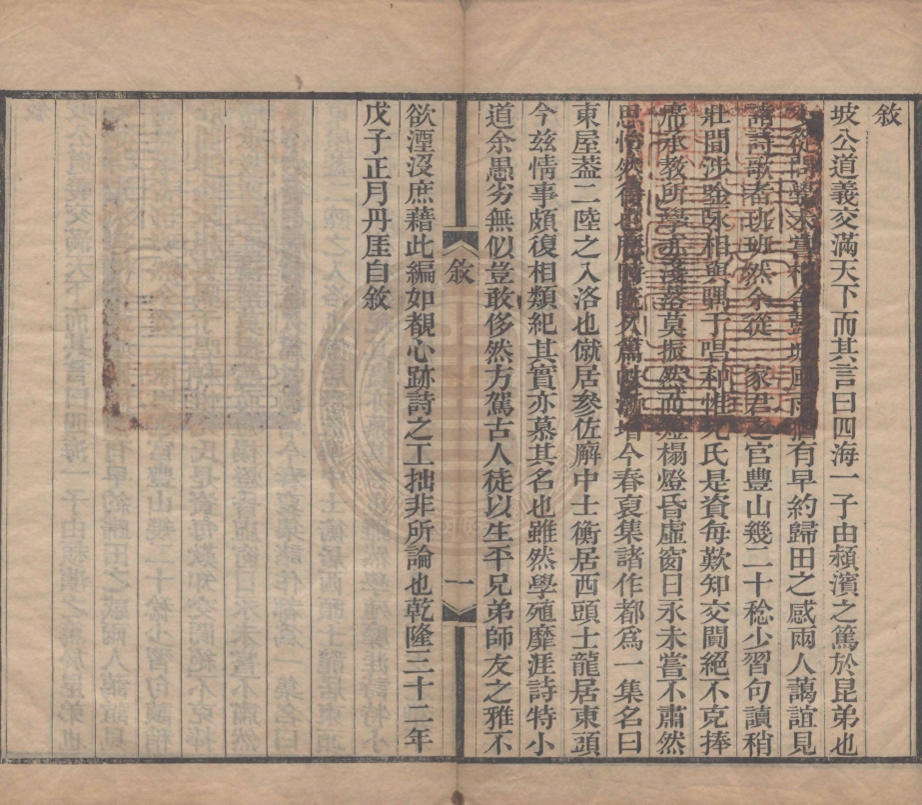 敘
坡公道義交滿天下而其言曰四海一子由潁濱之篤於昆弟也
有早約歸田之感兩人藹誼見
諸詩歌者班班然余從 家君之官豐山幾二十稔少習句讀稍
壯間涉唫詠相與喁于唱和惟兄氏是資每歎知交闃絕不克捧
席承教所學亦濩落莫振然而燈昏虛窗日永未嘗不肅然
思怡然得也歷時既久篇帙漸增今春裒集諸作都爲一集名曰
東屋葢二陸之入洛也僦居參佐廨中士衡居西頭士龍居東頭
今兹情事頗復相類紀其實亦慕其名也雖然學殖靡涯詩特小
道余愚劣無似豈敢侈然方駕古人徒以生平兄弟師友之雅不
敘
一
欲湮沒庶藉此編如覩心跡詩之工拙非所論也乾隆三十二年
戊子正月丹厓自敘